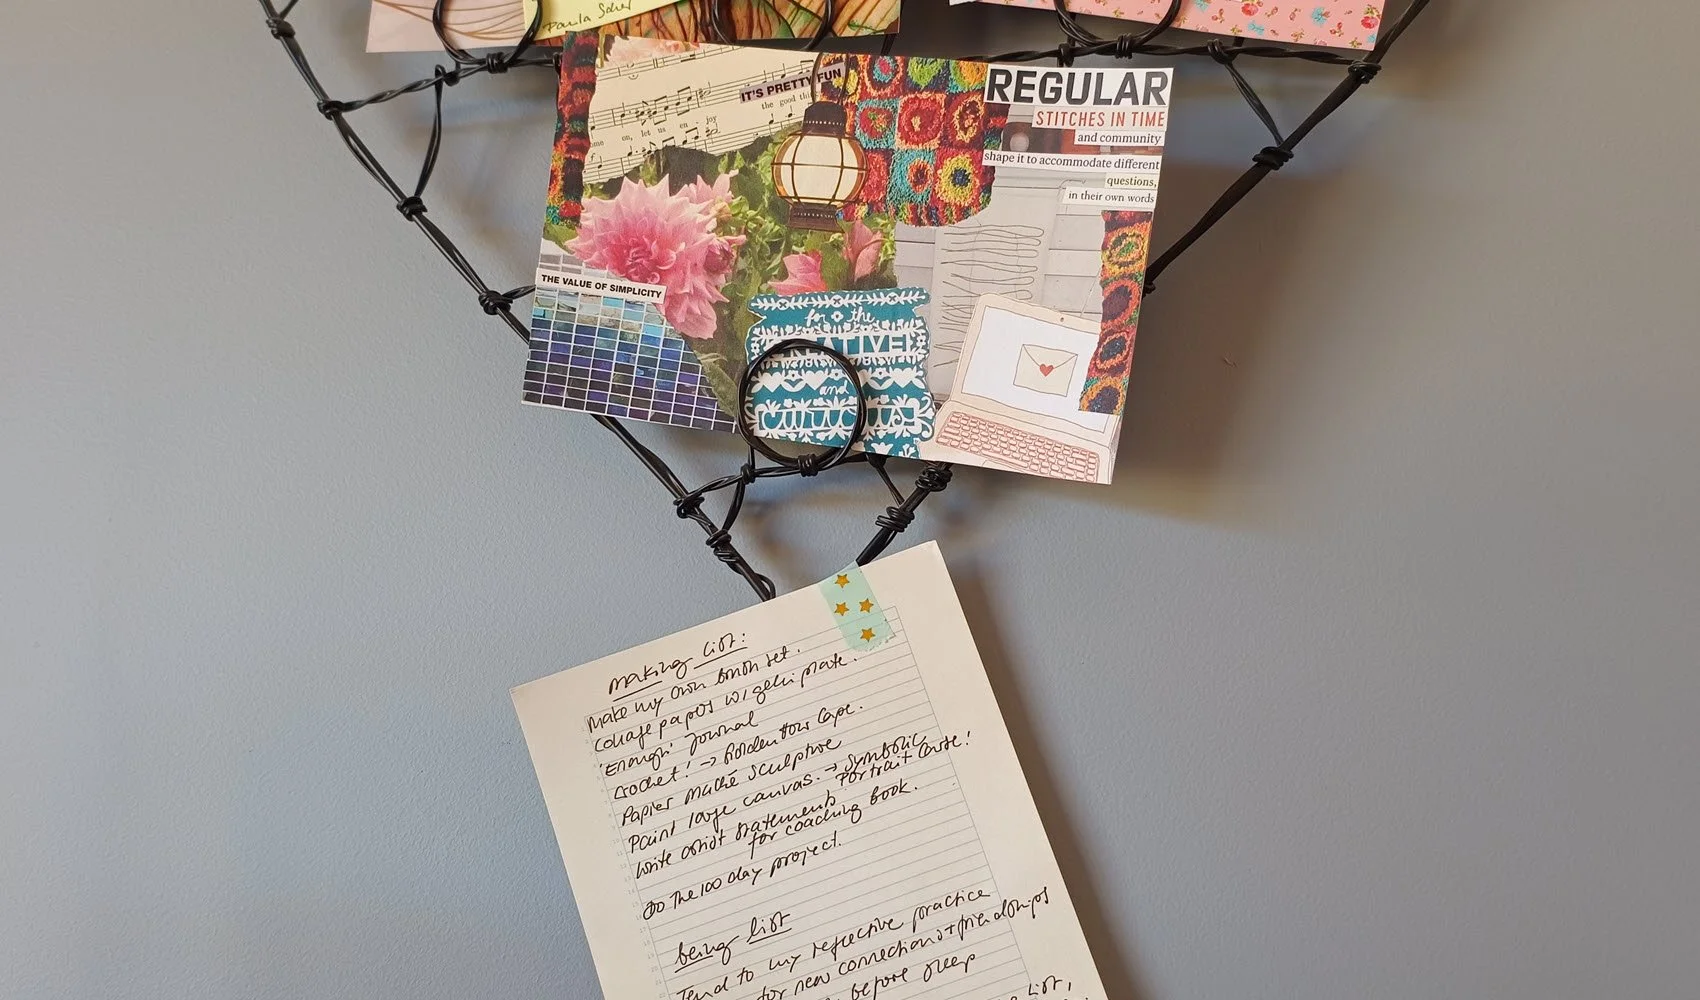 Paula Scher
IT'S PRETTY FUN
the good thi
ome on, let us en joy
REGULAR
STITCHES IN TIME
and community
shape it to accommodate different
questions,
in their own words
THE VALUE OF SIMPLICITY
for the
CREATIVE
and
curious
making list:
make my own brush set.
collage papers w/ gelli plate.
'Enough' journal
crochet! → Golden Hour Cape.
Papier maché sculpture
Paint large canvas. → symbolic
portrait course!
write artist statements
for coaching book.
Do The 100 day project.
being list
Tend to my reflective practice
for new connections + friendships
before sleep
list,